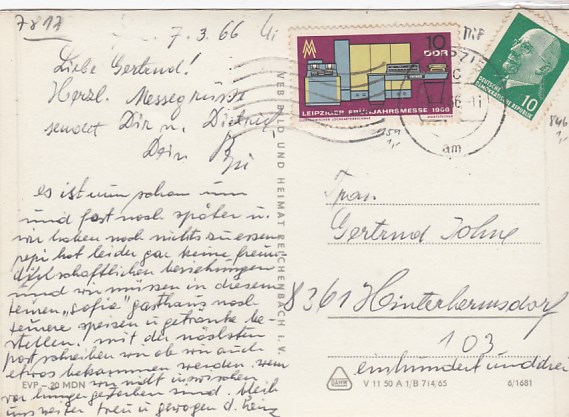 7817
7.3.66
Liebe Gertrud!
Herzl. Messegrüsse
sendet Dir u. Dietrich
Dein Pepi
es ist nun schon neun
und fast noch später u.
wir haben noch nichts zu essen
pepi hat leider gar keine freun
dschaftlichen beziehungen
und wir müssen in diesem
teuren „sofia" gasthaus noch
teurere speisen u getränke be-
stellen! mit der nächsten
post schreiben wir ob wir auch
etwas bekommen werden, wenn
wir nicht inzwischen
verhungert sind. bleib
uns weiter treu u gewogen d.
EVP –20 MDN
NEB BILD UND HEIMAT REICHENBACH I. V.
MM
10
DDR
LEIPZIGER FRÜHJAHRSMESSE 1966
MiF
10
DEUTSCHE
DEMOKRATISCHE REPUBLIK
am
846
1,-
1159
1,-
Frau
Gertrud Johne
8361 Hinterhermsdorf
103
einhundertunddrei
V 11 50 A 1/B 714/65
6/1681